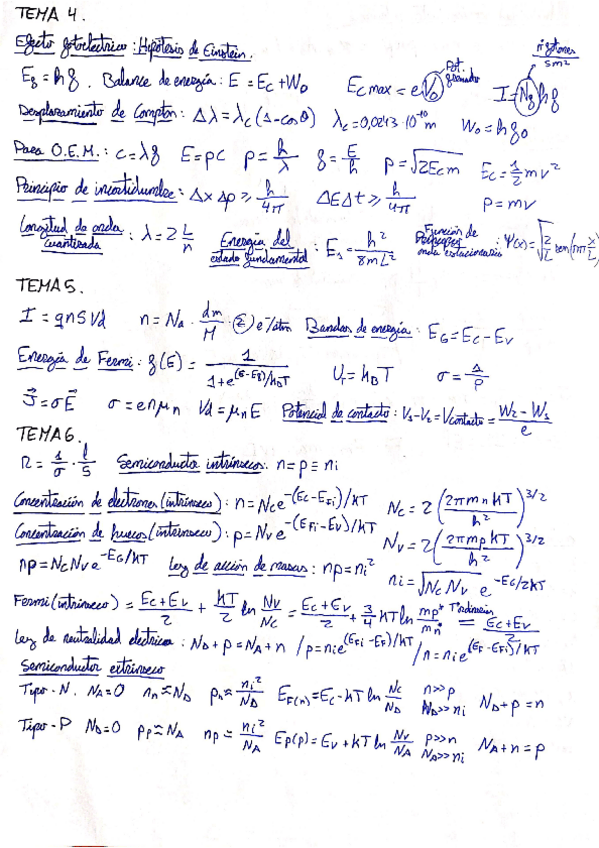 TEMA 4.
Efecto fotoeléctrico: Hipótesis de Einstein.
Pot. frenador
nº fotones / s m²
E_f = hf. Balance de energía: E = E_C + W_0 E_C max = eV_0 I = N_f hf
Desplazamiento de Compton: Δλ = λ_c (1-cosθ) λ_c = 0,0243·10^-10 m W_0 = hf_0
Para O.E.M.: c = λf E = pc p = h/λ f = E/h p = √(2E_C m) E_C = 1/2 mv²
Principio de incertidumbre: Δx Δp ≥ h/4π ΔEΔt ≥ h/4π p = mv
Longitud de onda cuantizada: λ = 2 L/n Energía del estado fundamental: E_1 = h²/8mL² Función de ondas estacionarias: Ψ(x) = √(2/L) sen(nπ x/L)
TEMA 5.
I = qnSVd n = N_a · dm/M · (2) e⁻/átm Bandas de energía: E_G = E_C - E_V
Energía de Fermi: f(E) = 1/(1+e^((E-E_f)/k_BT)) U_T = k_BT σ = 1/ρ
J⃗ = σE⃗ σ = enμ_n Vd = μ_n E Potencial de contacto: V_1-V_2 = V_contacto = (W_2 - W_1)/e
TEMA 6.
R = 1/σ · l/S Semiconductor intrínseco: n = p = n_i
Concentración de electrones (intrínseco): n = N_C e^(-(E_C-E_Fi)/KT) N_C = 2 (2πm_n KT/h²)^3/2
Concentración de huecos (intrínseco): p = N_V e^(-(E_Fi-E_V)/KT) N_V = 2 (2πm_p KT/h²)^3/2
np = N_C N_V e^(-E_G/KT) Ley de acción de masas: np = n_i² n_i = √(N_C N_V) e^(-E_G/2KT)
Fermi (intrínseco) = (E_C+E_V)/2 + KT/2 ln N_V/N_C = (E_C+E_V)/2 + 3/4 KT ln m_p*/m_n* = (E_C+E_V)/2
Ley de neutralidad eléctrica: N_D + p = N_A + n / p = n_i e^((E_Fi-E_F)/KT) / n = n_i e^((E_F-E_Fi)/KT)
Semiconductor extrínseco
Tipo-N. N_A = 0 n_n ≈ N_D p_n ≈ n_i²/N_D E_F(n) = E_C - KT ln N_C/N_D n>>p N_D>>n_i N_D + p = n
Tipo-P N_D = 0 p_p ≈ N_A n_p ≈ n_i²/N_A E_F(p) = E_V + KT ln N_V/N_A p>>n N_A>>n_i N_A + n = p